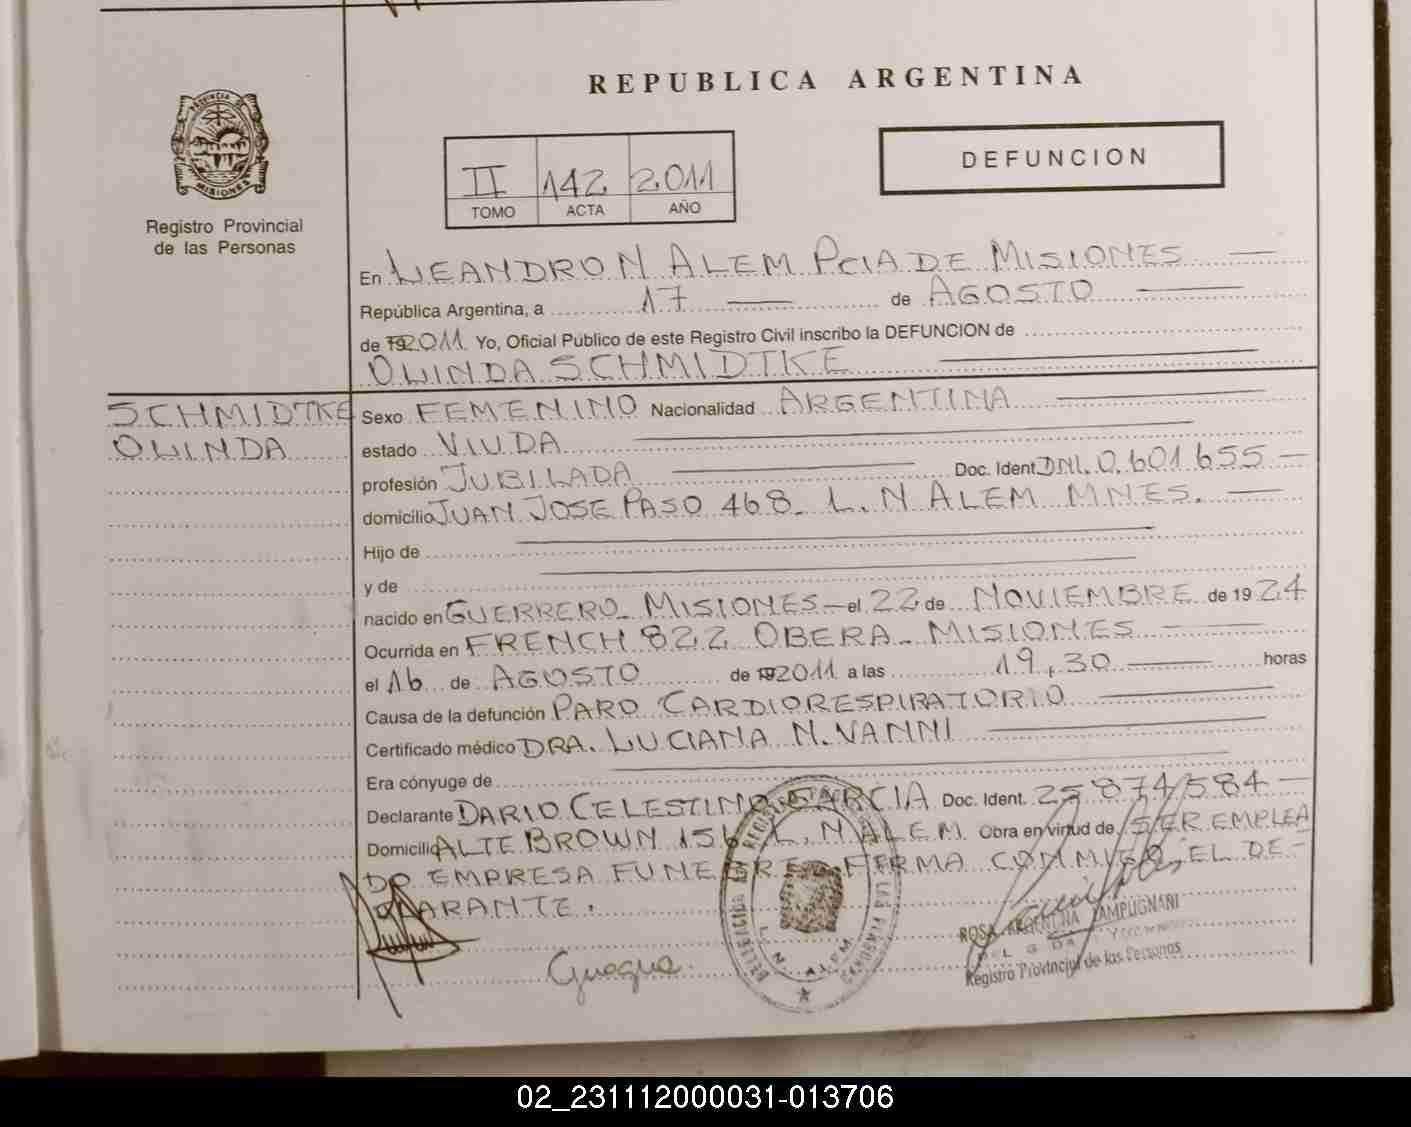 REPUBLICA ARGENTINA
PROVINCIA DE
MISIONES
Registro Provincial
de las Personas
II 142 2011
TOMO ACTA AÑO
DEFUNCION
En LEANDRO N ALEM PCIA DE MISIONES
República Argentina, a 17 de AGOSTO
de 2011 Yo, Oficial Público de este Registro Civil inscribo la DEFUNCION de
OLINDA SCHMIDTKE
SCHMIDTKE
OLINDA
Sexo FEMENINO Nacionalidad ARGENTINA
estado VIUDA
profesión JUBILADA Doc. Ident DNI. 0.601.655
domicilio JUAN JOSE PASO 468_ L. N ALEM MNES.
Hijo de
y de
nacido en GUERRERO_ MISIONES el 22 de NOVIEMBRE de 1924
Ocurrida en FRENCH 822 OBERA_ MISIONES
el 16 de AGOSTO de 2011 a las 19,30 horas
Causa de la defunción PARO CARDIORESPIRATORIO
Certificado médico DRA. LUCIANA N. VANNI
Era cónyuge de
Declarante DARIO CELESTINO GARCIA Doc. Ident. 25 874/584
Domicilio ALTE BROWN 156 L. N ALEM Obra en virtud de SER EMPLEA
DO EMPRESA FUNEBRE_ FIRMA CONMIGO, EL DE-
CLARANTE.
L. N. ALEM
ROSA ARGENTINA LAMPUGNANI
Registro Provincial de las Personas
02_231112000031-013706